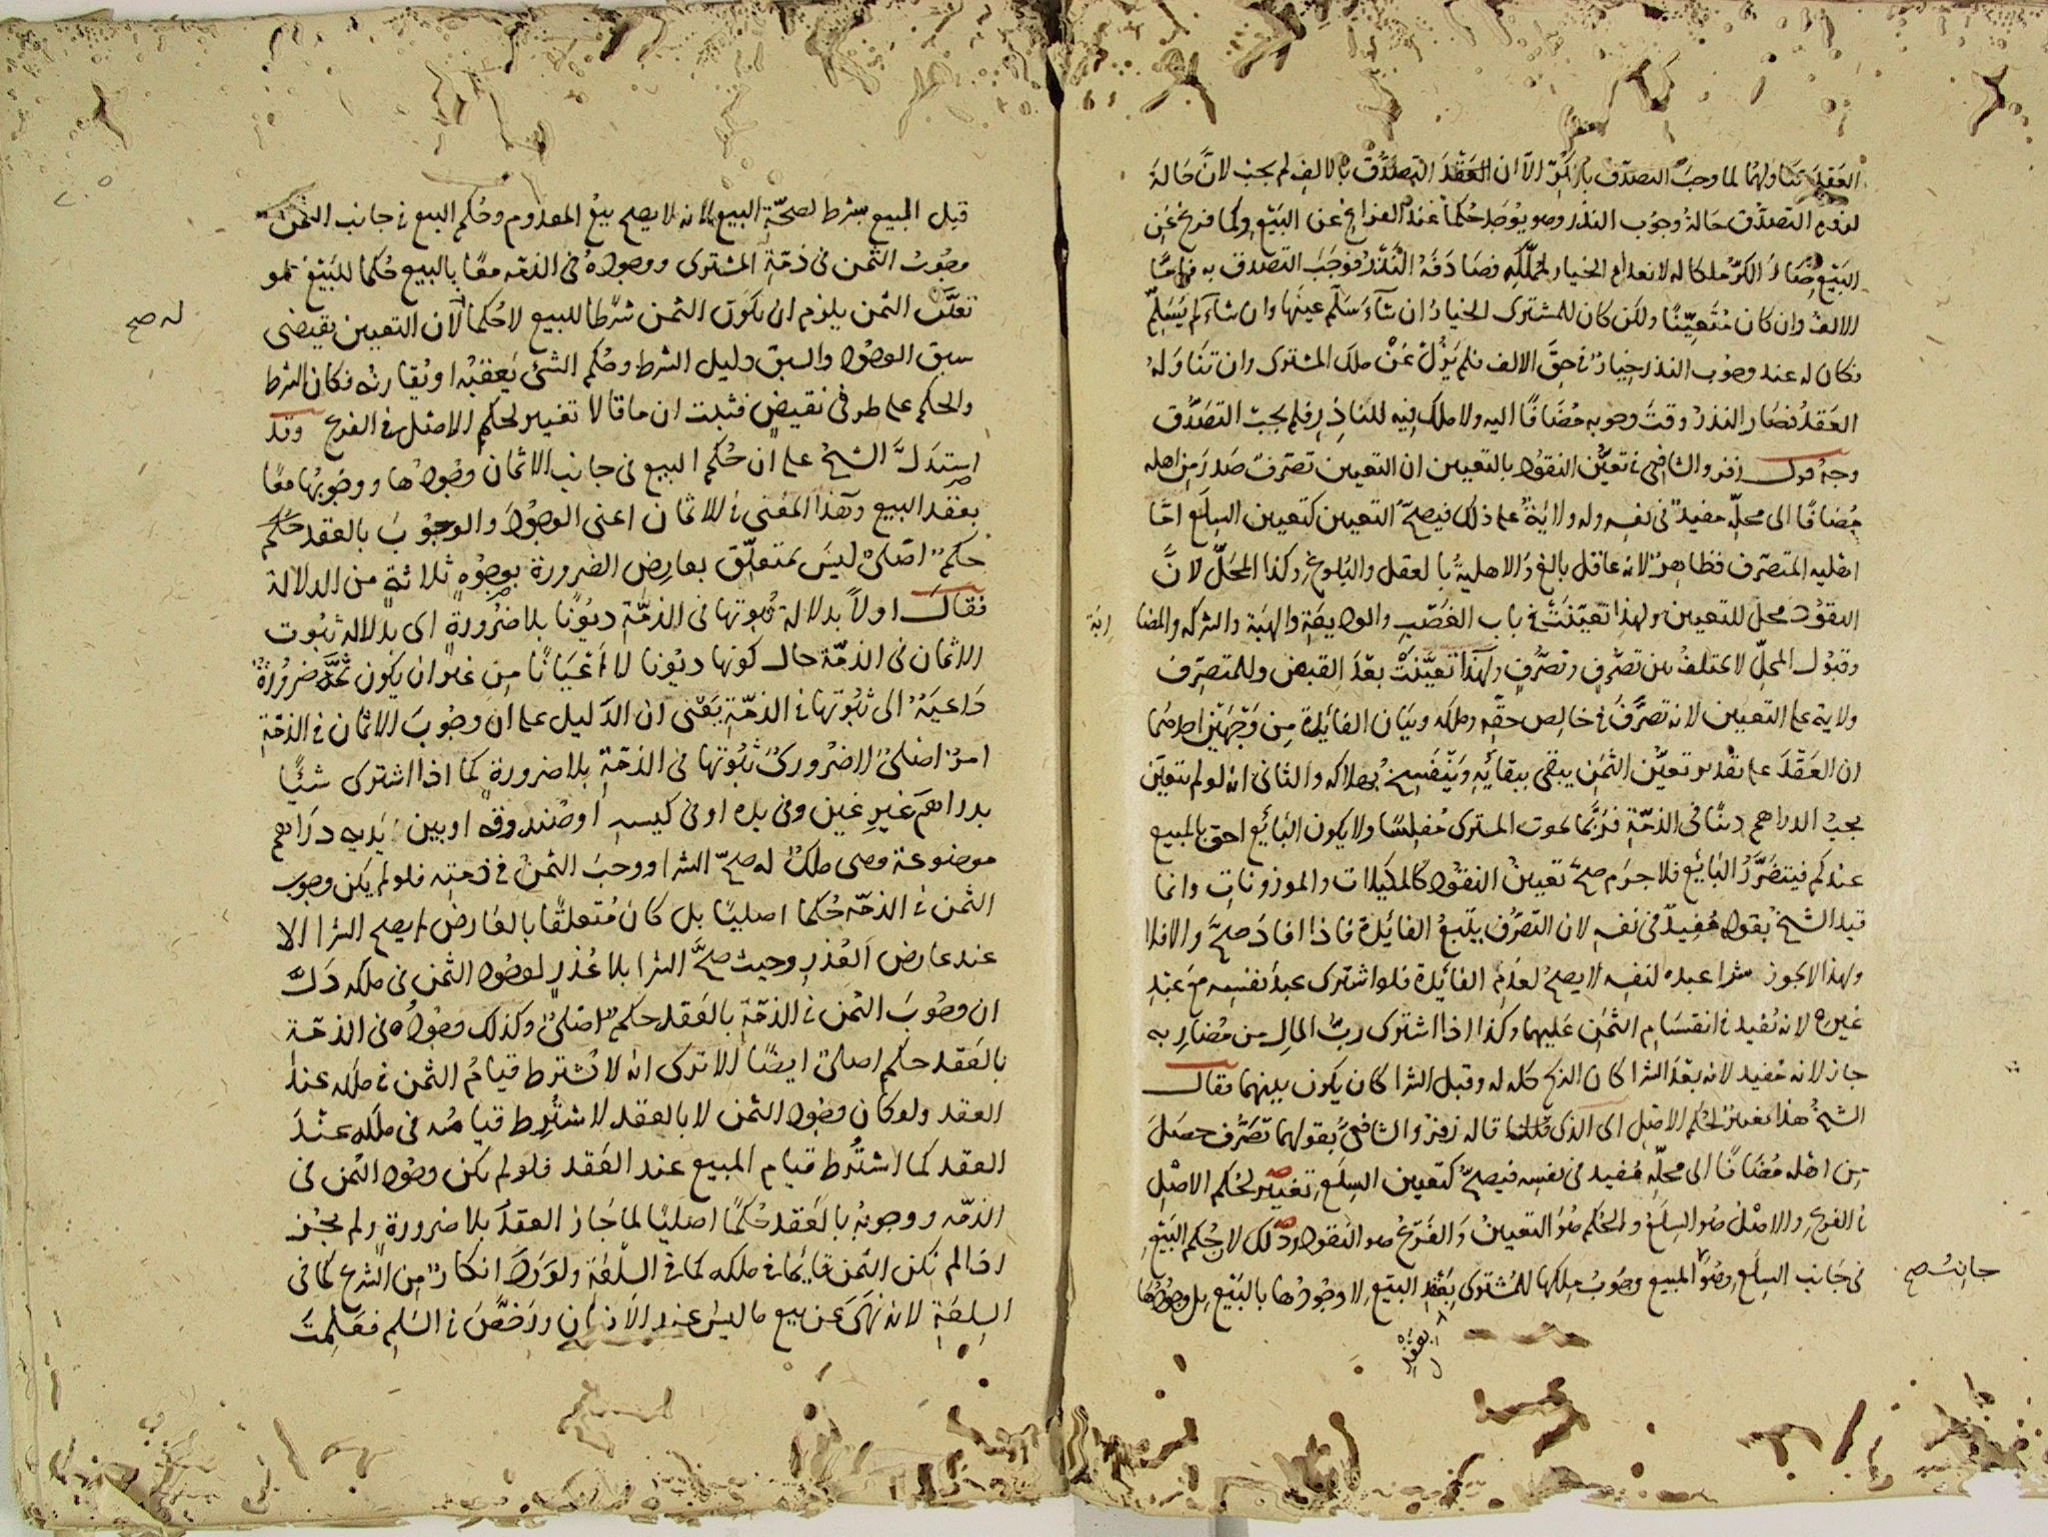 العقد تناولهما لما وجب التصدق بالكر الا ان العقد التصدق بالالف لم يجب لان حالة
لزوم التصدق حالة وجوب النذر وهو يوجد حكما عند الفراغ عن البيع وكما فرغ عن
البيع صار الكر ملكا له لانعدام الخيار لمملكه فصادفه النذر فوجب التصدق به فاما
الالف وان كان متعينا ولكن كان للمشترى الخيار ان شاء سلم عينها وان شاء لم يسلم
فكان له عند وجوب النذر خيار في حق الالف فلم يزل عن ملك المشترى وان تناوله
العقد فصار النذر وقت وجوبه مضافا اليه ولا ملك فيه للناذر فلم يجب التصدق
وجه قول زفر والشافعى في تعين النقود بالتعيين ان التعيين تصرف صدر من اهله
مضافا الى محله مفيد في نفسه وله ولاية على ذلك فيصح التعيين كتعيين السلع اما
اهلية المتصرف فظاهرة لانه عاقل بالغ والاهلية بالعقل والبلوغ وكذا المحل لان
النقود محل للتعيين ولهذا تعينت في باب الغصب والوديعة والهبة والشركة والمضا ربة
وقبول المحل لا يختلف بين تصرف وتصرف ولهذا تعينت بعد القبض وللمتصرف
ولاية على التعيين لانه تصرف في خالص حقه وملكه وبيان الفائدة من وجهين احدهما
ان العقد على تقدير تعين الثمن يبقى ببقائه وينفسخ بهلاكه والثانى انه لو لم يتعين
يجب الدراهم دينا في الذمة فربما يموت المشترى مفلسا ولا يكون البائع احق بالمبيع
عندكم فيتضرر البائع فلا جرم صح تعيين النقود كالمكيلات والموزونات وانما
قيد الشيخ بقوله مفيد في نفسه لان التصرف يتبع الفائدة فاذا افاد صح والا فلا
ولهذا لا يجوز شرا عبده لنفسه لا يصح لعدم الفائدة فلو اشترى عبد نفسه مع عبد
غيره لانه يفيد في انقسام الثمن عليهما وكذا اذا اشترى رب المال من مضاربه
جاز لانه مفيد لانه بعد الشرا كان الربح كله له وقبل الشرا كان يكون بينهما فقال
الشيخ هذا تغيير لحكم الاصل اى الذى قاله زفر والشافعى بقولهما تصرف حصل
من اهله مضافا الى محله مفيد في نفسه فيصح كتعيين السلع تغيير لحكم الاصل
في الفرع والاصل هو السلع والحكم هو التعيين والفرع هو النقود وذلك لان حكم البيع
في جانب السلع وهو المبيع وجوب ملكها للمشترى بعقد البيع لا وجودها بالبيع بل وجودها
جانب صح
بعقد
قبل المبيع شرط لصحة البيع لانه لا يصح بيع المعدوم وحكم البيع في جانب الثمن
وجوب الثمن في ذمة المشترى ووجوده في الذمة معا بالبيع حكما للبيع فلو
تعين الثمن يلزم ان يكون الثمن شرطا للبيع لا حكما لان التعيين يقتضى
له صح
سبق الوجود والسبق دليل الشرط وحكم الشئ يعقبه او يقارنه فكان الشرط
والحكم على طرفى نقيض فثبت ان ما قالا تغيير لحكم الاصل في الفرع وقد
استدل الشيخ على ان حكم البيع في جانب الاثمان وجودها ووجوبها معا
بعقد البيع وهذا المعنى في الاثمان اعنى الوجود والوجوب بالعقد حكم
حكم اصلى ليس بمتعلق بعارض الضرورة بوجوه ثلاثة من الدلالة
فقال اولا بدلالة ثبوتها في الذمة ديونا بلا ضرورة اى بدلالة ثبوت
الاثمان في الذمة حال كونها ديونا لا اعيانا من غير ان يكون ثمة ضرورة
داعية الى ثبوتها في الذمة يعنى ان الدليل على ان وجوب الاثمان في الذمة
امر اصلى لا ضرورى ثبوتها في الذمة بلا ضرورة كما اذا اشترى شيئا
بدراهم غير عين وفى يده او في كيسه او صندوقه او بين يديه دراهم
موضوعة وهى ملك له صح الشرا ووجب الثمن في ذمته فلو لم يكن وجوب
الثمن في الذمة حكما اصليا بل كان متعلقا بالعارض لم يصح الشرا الا
عند عارض العذر وحيث صح الشرا بلا عذر لوجود الثمن في ملكه دل
ان وجوب الثمن في الذمة بالعقد حكم اصلى وكذلك وجوده في الذمة
بالعقد حكم اصلى ايضا الا ترى انه لا يشترط قيام الثمن في ملكه عند
العقد ولو كان وجود الثمن لا بالعقد لاشترط قيامه في ملكه عند
العقد كما اشترط قيام المبيع عند العقد فلو لم يكن وجود الثمن في
الذمة ووجوبه بالعقد حكما اصليا لما جاز العقد بلا ضرورة ولم يجز
اذا لم يكن الثمن قائما في ملكه كما في السلعة ولورد انكار من الشرع كما في
السلعة لانه نهى عن بيع ما ليس عند الانسان ورخص في السلم فعلمت